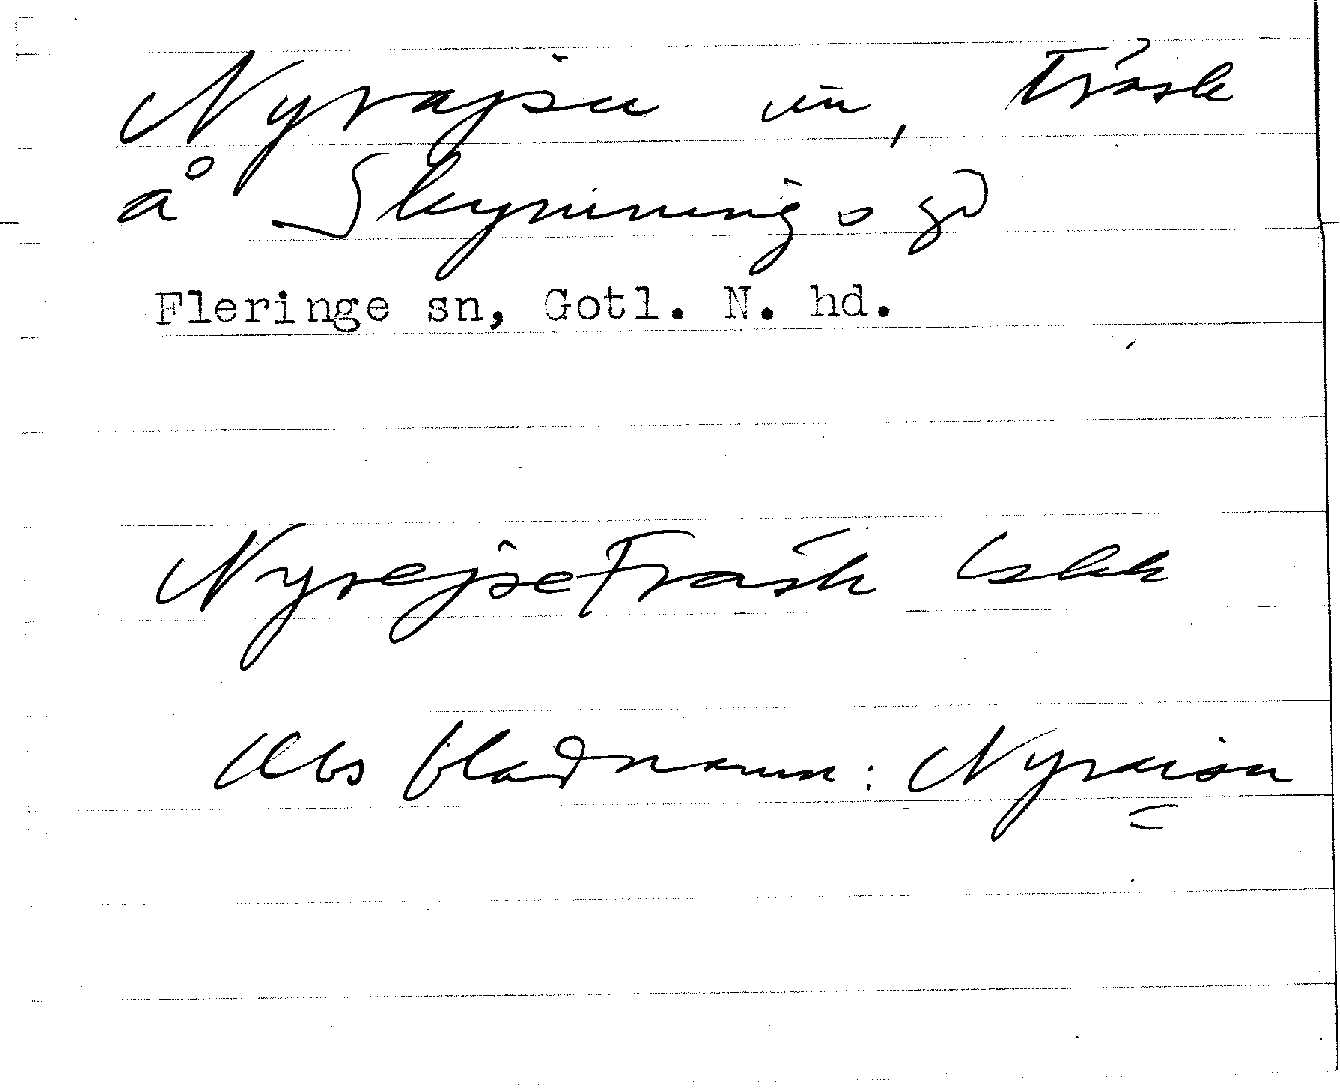 Nyrajsu än, Träsk
å Skymnings gd
Fleringe sn, Gotl. N. hd.
Nyrejseträsk
Obs bladnamn: Nyraisu